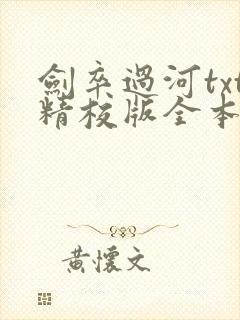 劍卒過河txt
精校版全本
黃懷文